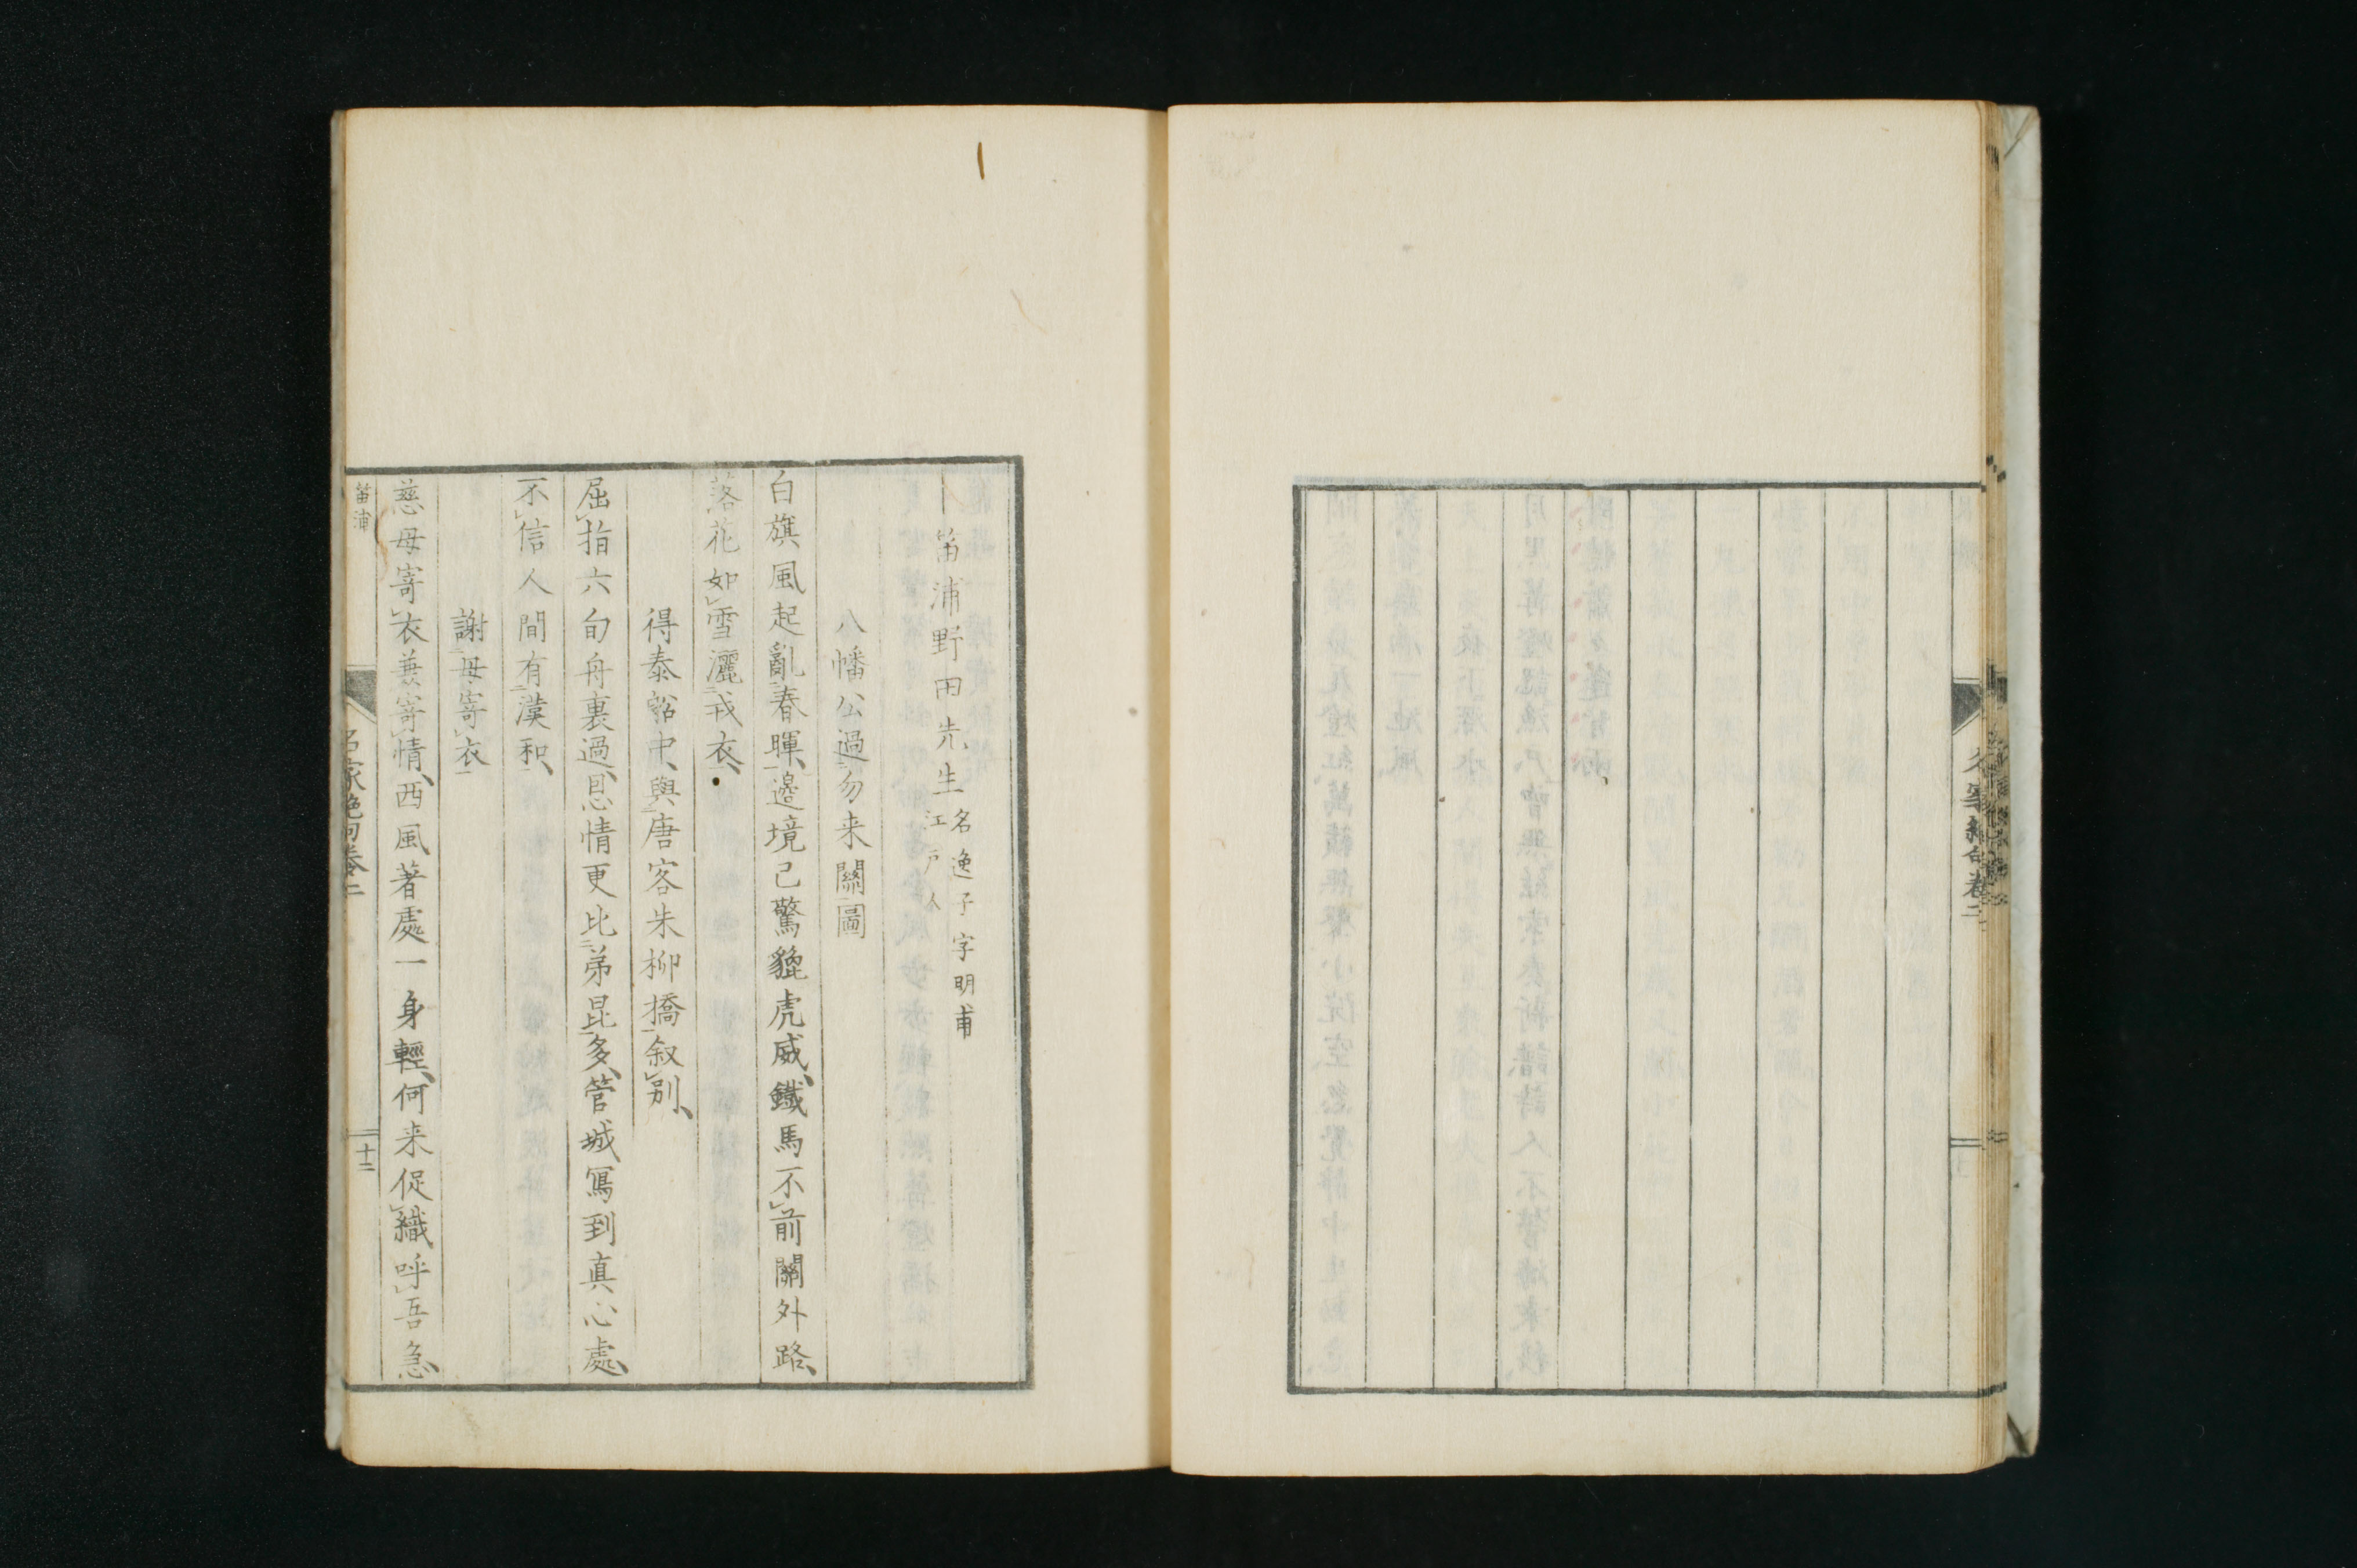 名家絶句卷二
笛浦野田先生 名逸子字明甫 江戸人
八幡公過勿来關圖
白旗風起亂春暉邊境已驚貔虎威鐵馬不前關外路
落花如雪灑戎衣
得泰舩中與唐客朱柳橋叙別
屈指六旬舟裏過恩情更比弟昆多管城寫到真心處
不信人間有漢和
謝母寄衣
慈母寄衣兼寄情西風著處一身輕何来促織呼吾急
笛浦
名家絶句卷二
十二